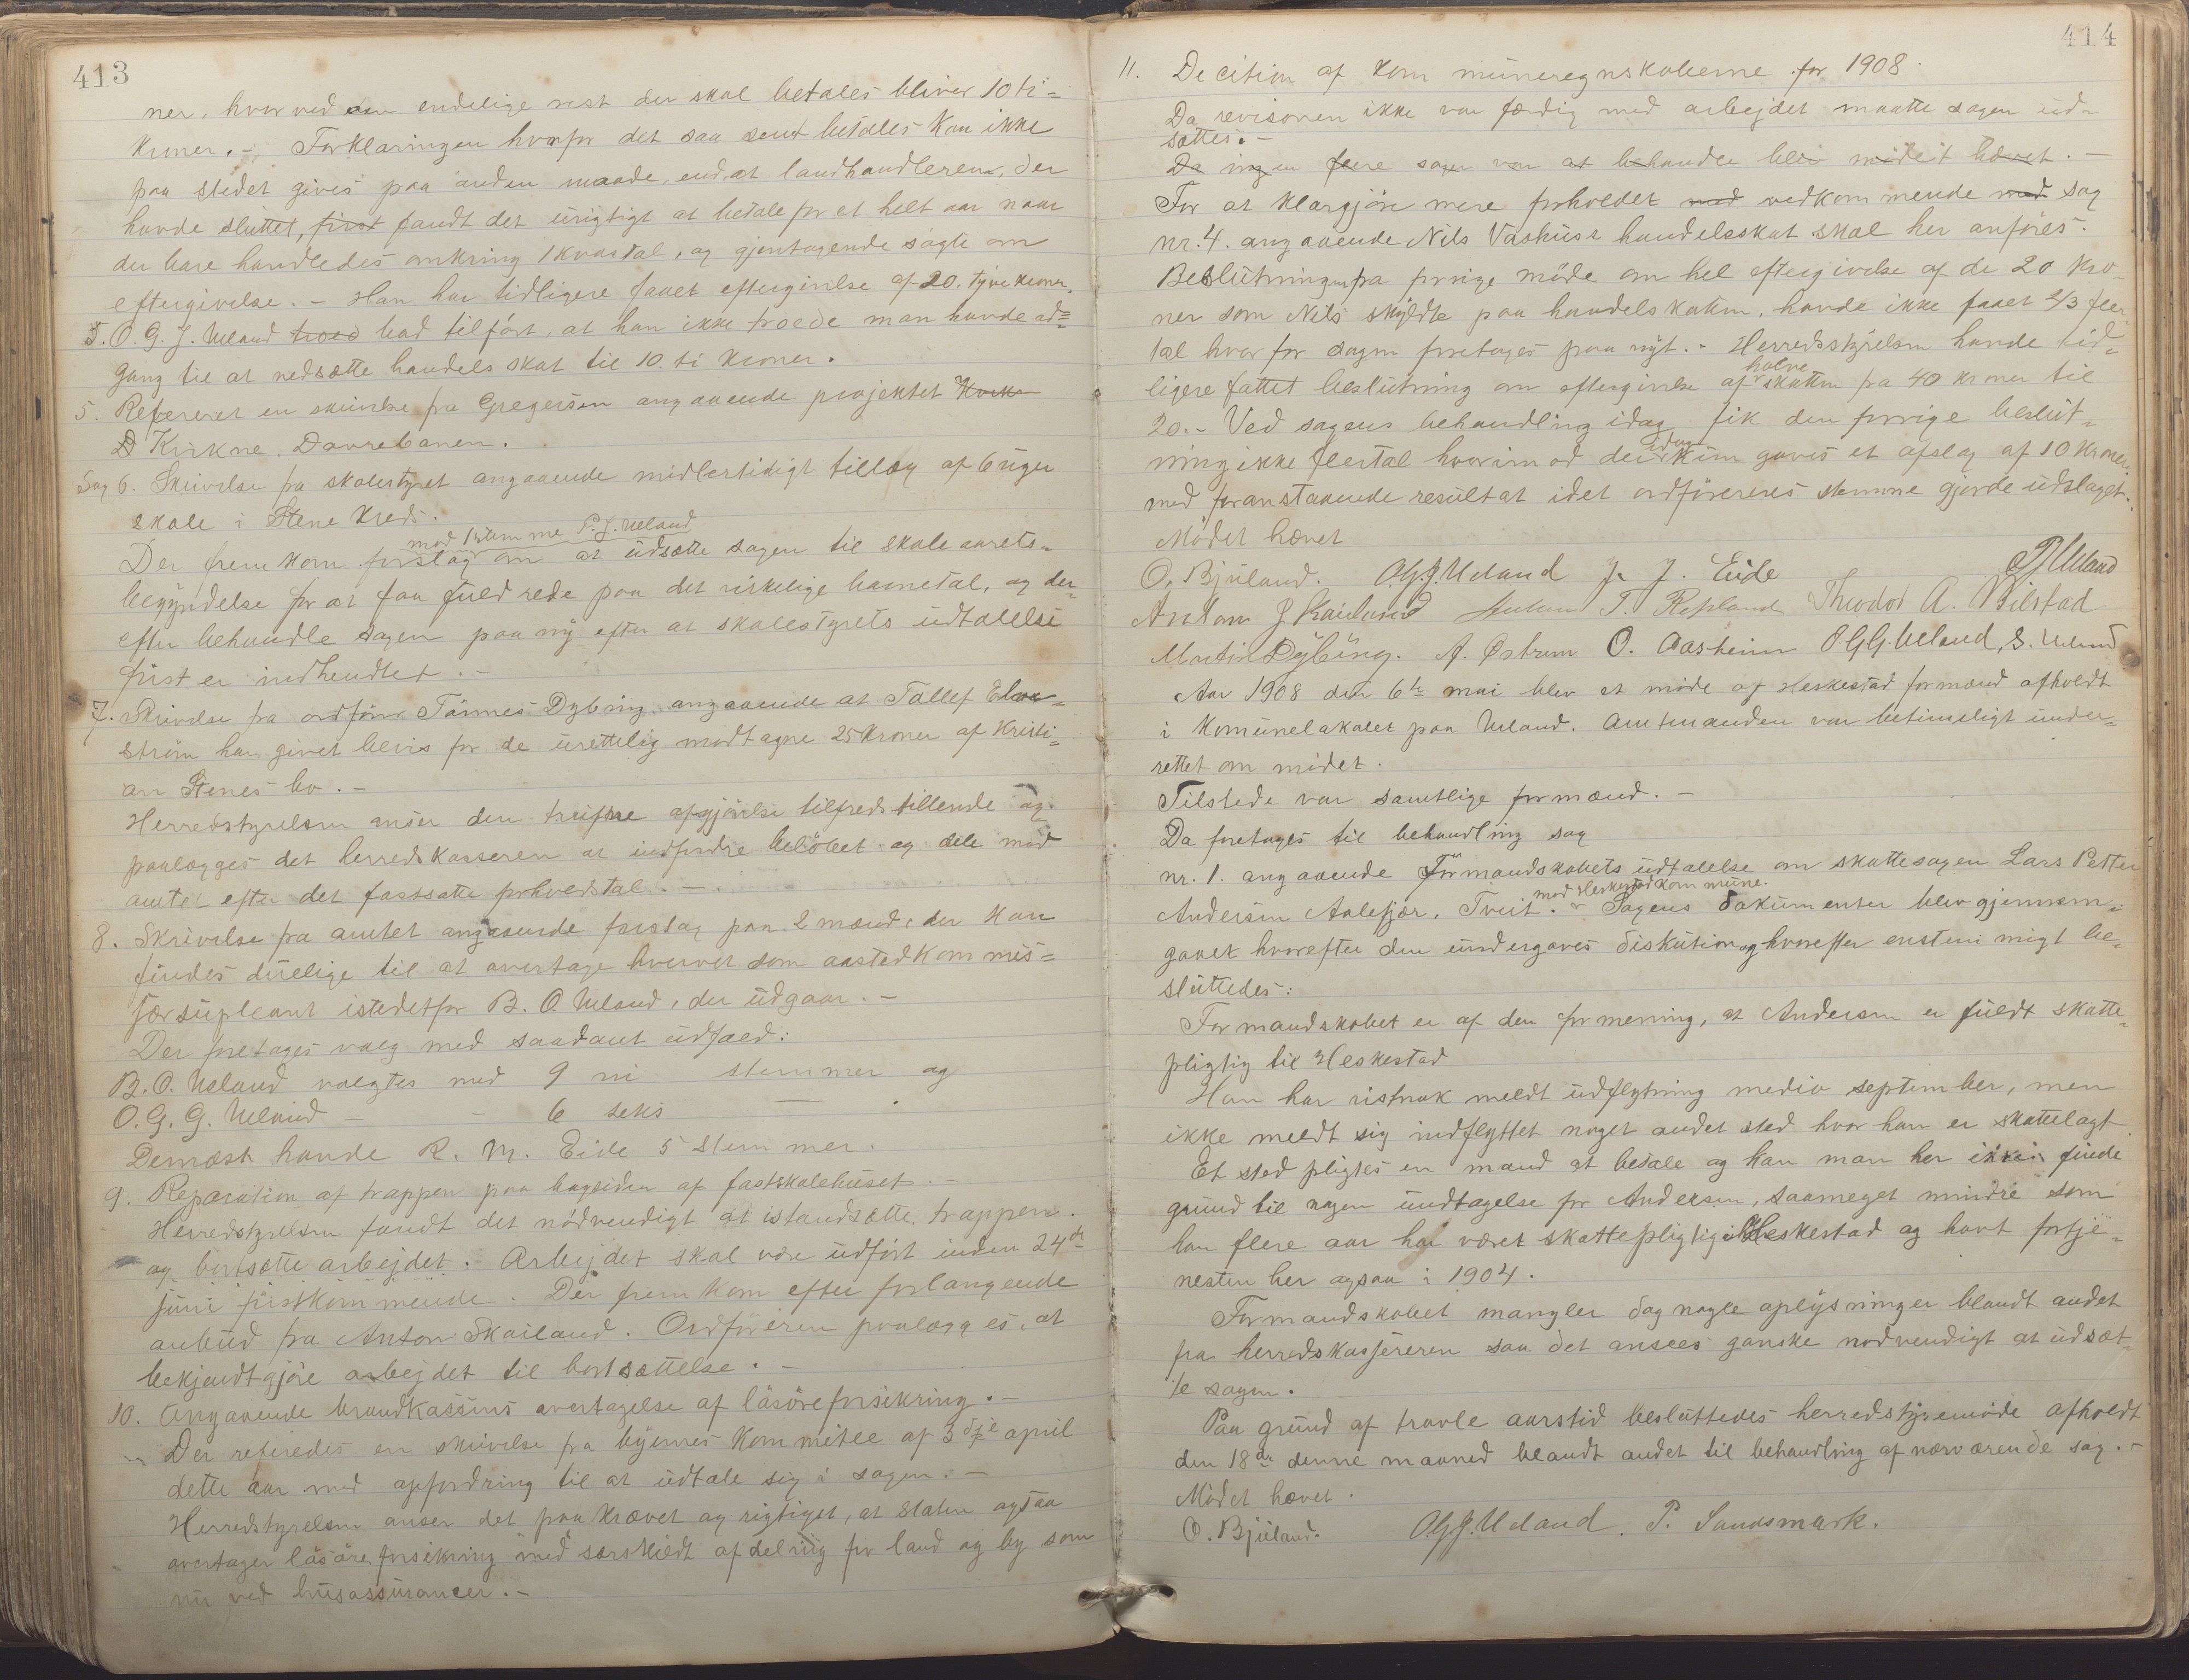 413
ner, hvorved den endelige rest der skal betales bliver 10 ti-
kroner. - Forklaringen hvorfor det saa sent betales kan ikke
paa stedet gives paa anden maade, end at landhandleren, der
havde sluttet, first fandt det urigtigt at betale for et helt aar naar
der bare handledes omkring 1 kvartal, og gjentagende søgte om
eftergivelse. - Han har tidligere faaet eftergivelse af 20. tyve kroner.
O. G. J. Ueland troed bad tilført, at han ikke troede man havde ad-
gang til at nedsætte handels skat til 10. ti kroner.
5. Refereret en skrivelse fra Gregersen angaaende projektet
Kirkne, Dovrebanen.
Sag 6. Skrivelse fra skolestyret angaaende midlertidigt tillæg af 6 uger
skole i Stene kreds.
mod 1 stemme P. J. Ueland
Der fremkom forslag om at udsætte sagen til skoleaarets-
begyndelse for at faa fuld rede paa det virkelige barnetal, og der-
efter behandle sagen paa ny efter at skolestyrets udtalelse
først er indhendtet. -
7. Skrivelse fra ordfører Tønnes Dybing angaaende at Tollef
strøm har givet bevis for de urettelig modtagne 25 kroner af Kristi-
an Stenes bo. -
Herredstyrelsen anser den trufne afgjørelse tilfredstillende og
paalægges det herredskasseren at indfordre beløbet og dele med
amtet efter det fastsatte forholdstal. -
8. Skrivelse fra amtet angaaende forslag paa 2 mænd, der kan
findes duelige til at overtage hvervet som aastedkommis-
jærsupleant istedetfor B. O. Ueland, der udgaar. -
Der foretages valg med saadant udfald:
B. O. Ueland valgtes med 9 ni stemmer og
O. G. G. Ueland - - 6 seks — .
Dernæst havde R. M. Eide 5 stemmer.
9. Reparation af trappen paa bagsiden af fastskolehuset. -
Herredstyrelsen fandt det nødvendigt at istandsætte trappen.
og bortsætte arbejdet. Arbejdet skal være udført inden 24de
juni førstkommende. Der fremkom efter forlangende
anbud fra Anton Skailand. Ordføreren paalægges, at
bekjendtgjøre arbejdet til bortsættelse. -
10. Angaaende brandkassens overtagelse af løsøreforsikring. -
Der refiredes en skrivelse fra byernes kommitee af 3dje april
dette aar med opfordring til at udtale sig i sagen. -
Herredstyrelsen anser det paakrævet og rigtiget, at staten ogsaa
overtager løsøre forsikring med særskildt afdeling for land og by som
nu ved husassurancer. -
414
11. Decition af kommuneregnskaberne for 1908.
Da revisoren ikke var færdig med arbejdet maatte sagen ud-
sættes. -
Da ingen flere sager var at behandle blev mødet hævet. -
For at klargjøre mere forholdet med vedkommende med sag
nr. 4. angaaende Nils Vashuss handelsskat skal her anføres:
Beslutningen fra forrige møde om hel eftergivelse af de 20 kro-
ner som Nils skyldte paa handelskatten, havde ikke faaet 2/3 fler-
tal hvorfor sagen foretages paa nyt. - Herredsstyrelsen havde tid-
ligere fattet beslutning om eftergivelse af halve skatten fra 40 kroner til
20. - Ved sagens behandling idag fik den forrige beslut-
ning ikke flertal hvorimod der idag kun gaves et afslag af 10 kroner
med foranstaaende resultat idet ordførerens stemme gjorde udslaget.
Mødet hævet
O. Bjuland. OGJ. Ueland J. J. Eide PJUeland
Anton J Skailand Anton T. Repland Theodor A. Bilstad
Martin Dybing. A. Østrem O. Aasheim O.G.G. Ueland, S. Ueland
Aar 1908 den 6te mai blev et møde af Heskestad formænd afholdt
i komunelokalet paa Ueland. Amtmanden var betimeligt under-
rettet om mødet.
Tilstede var samtlige formænd. -
Da foretages til behandling sag
nr. 1. angaaende Formandskabets udtalelse om skattesagen Lars Petter
Andersen Aalefjær, Tveit. mod Heskestad kommune. Sagens dokumenter blev gjennem-
gaaet hvorefter den undergaves diskution og hvorefter enstemmigt be-
sluttedes:
Formandskabet er af den formening, at Andersen er fuldt skatte-
pligtig til Heskestad
Han har vistnok meldt udflytning medio september, men
ikke meldt sig indflyttet noget andet sted hvor han er skattelagt
Et sted pligtes en mand at betale og kan man her ikke finde
grund til nogen undtagelse for Andersen, saameget mindre som
han flere aar har været skattepligtig i Heskestad og havt fortje-
nesten her ogsaa i 1904.
Formandskabet mangler dog nogle oplysninger blandt andet
fra herredskasjereren saa det ansees ganske nødvendigt at udsæt-
te sagen.
Paa grund af travle aarstid besluttedes herredstyremøde afholdt
den 18de denne maaned blandt andet til behandling af nærværende sag. -
Mødet hævet.
O. Bjuland. OGJ. Ueland. P. Sandsmark.